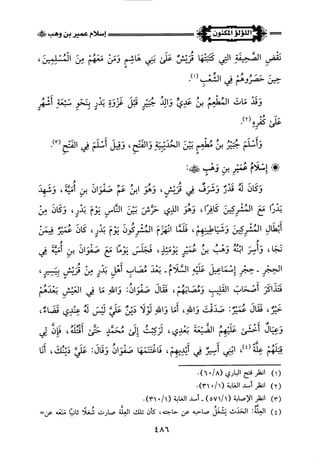 اللؤلؤ المكنون
إسلام عمير بن وهب
نَقْضِ الصَّحِيفَةِ التِي كَتَبَتْهَا قُرَيْشٌ عَلَى بَنِي هَاشِمٍ وَمَنْ مَعَهُمْ مِنَ المُسْلِمِينَ،
حِينَ حَصَرُوهُمْ فِي الشِّعْبِ (١).
وَقَدْ مَاتَ المُطْعِمُ بنُ عَدِيٍّ وَالِدُ جُبَيْرٍ قَبْلَ غَزْوَةِ بَدْرٍ بِنَحْوِ سَبْعَةِ أَشْهُرٍ
عَلَى كُفْرِهِ (٢).
وَأَسْلَمَ جُبَيْرُ بنُ مُطْعِمٍ بَيْنَ الحُدَيْبِيَةِ وَالفَتْحِ، وَقِيلَ أَسْلَمَ فِي الفَتْحِ (٣).
إِسْلَامُ عُمَيْرِ بنِ وَهْبٍ :
وَكَانَ لَهُ قَدْرٌ وَشَرَفٌ فِي قُرَيْشٍ، وَهُوَ ابنُ عَمِّ صَفْوَانَ بنِ أُمَيَّةَ، وَشَهِدَ
بَدْرًا مَعَ المُشْرِكِينَ كَافِرًا، وَهُوَ الذِي حَرَّشَ بَيْنَ النَّاسِ يَوْمَ بَدْرٍ، وَكَانَ مِنْ
أَبْطَالِ المُشْرِكِينَ وَشَيَاطِينِهِمْ، فَلَمَّا انْهَزَمَ المُشْرِكُونَ يَوْمَ بَدْرٍ، كَانَ عُمَيْرٌ فِيمَنْ
نَجَا، وَأُسِرَ ابْنُهُ وَهْبُ بنُ عُمَيْرٍ يَوْمَئِذٍ، فَجَلَسَ يَوْمًا مَعَ صَفْوَانَ بنِ أُمَيَّةَ فِي
الحِجْرِ - حِجْرِ إِسْمَاعِيلَ عَلَيْهِ السَّلَامُ - بَعْدَ مُصَابِ أَهْلِ بَدْرٍ مِنْ قُرَيْشٍ بِيَسِيرٍ،
فَتَذَاكَرَ أَصْحَابَ القَلِيبِ وَمُصَابَهُمْ، فَقَالَ صَفْوَانُ: وَاللهِ مَا فِي العَيْشِ بَعْدَهُمْ
خَيْرٌ، فَقَالَ عُمَيْرٌ: صَدَقْتَ وَاللهِ، أَمَا وَاللهِ لَوْلَا دَيْنٌ عَلَيَّ لَيْسَ لَهُ عِنْدِي قَضَاءٌ،
وَعِيَالٌ أَخْشَى عَلَيْهِمُ الضَّيْعَةَ بَعْدِي، لَرَكِبْتُ إِلَى مُحَمَّدٍ حَتَّى أَقْتُلَهُ، فَإِنَّ لِي
قِبَلَهُمْ عِلَّةً (٤)، ابْنِي أَسِيرٌ فِي أَيْدِيهِمْ، فَاغْتَنَمَهَا صَفْوَانُ وَقَالَ: عَلَيَّ دَيْنُكَ، أَنَا
(١) انظر فتح الباري (٦٠/٨).
(٢) انظر أسد الغابة (٣١٠/١).
(٣) انظر الإصابة (٥٧١/١) - أسد الغابة (٣١٠/١).
(٤) العِلَّةُ: الحَدَثُ يَشْغَلُ صاحبه عن حاجته، كأن تلك العِلَّة صارت شُغْلًا ثانيًا مَنَعَه عن=
٤٨٦